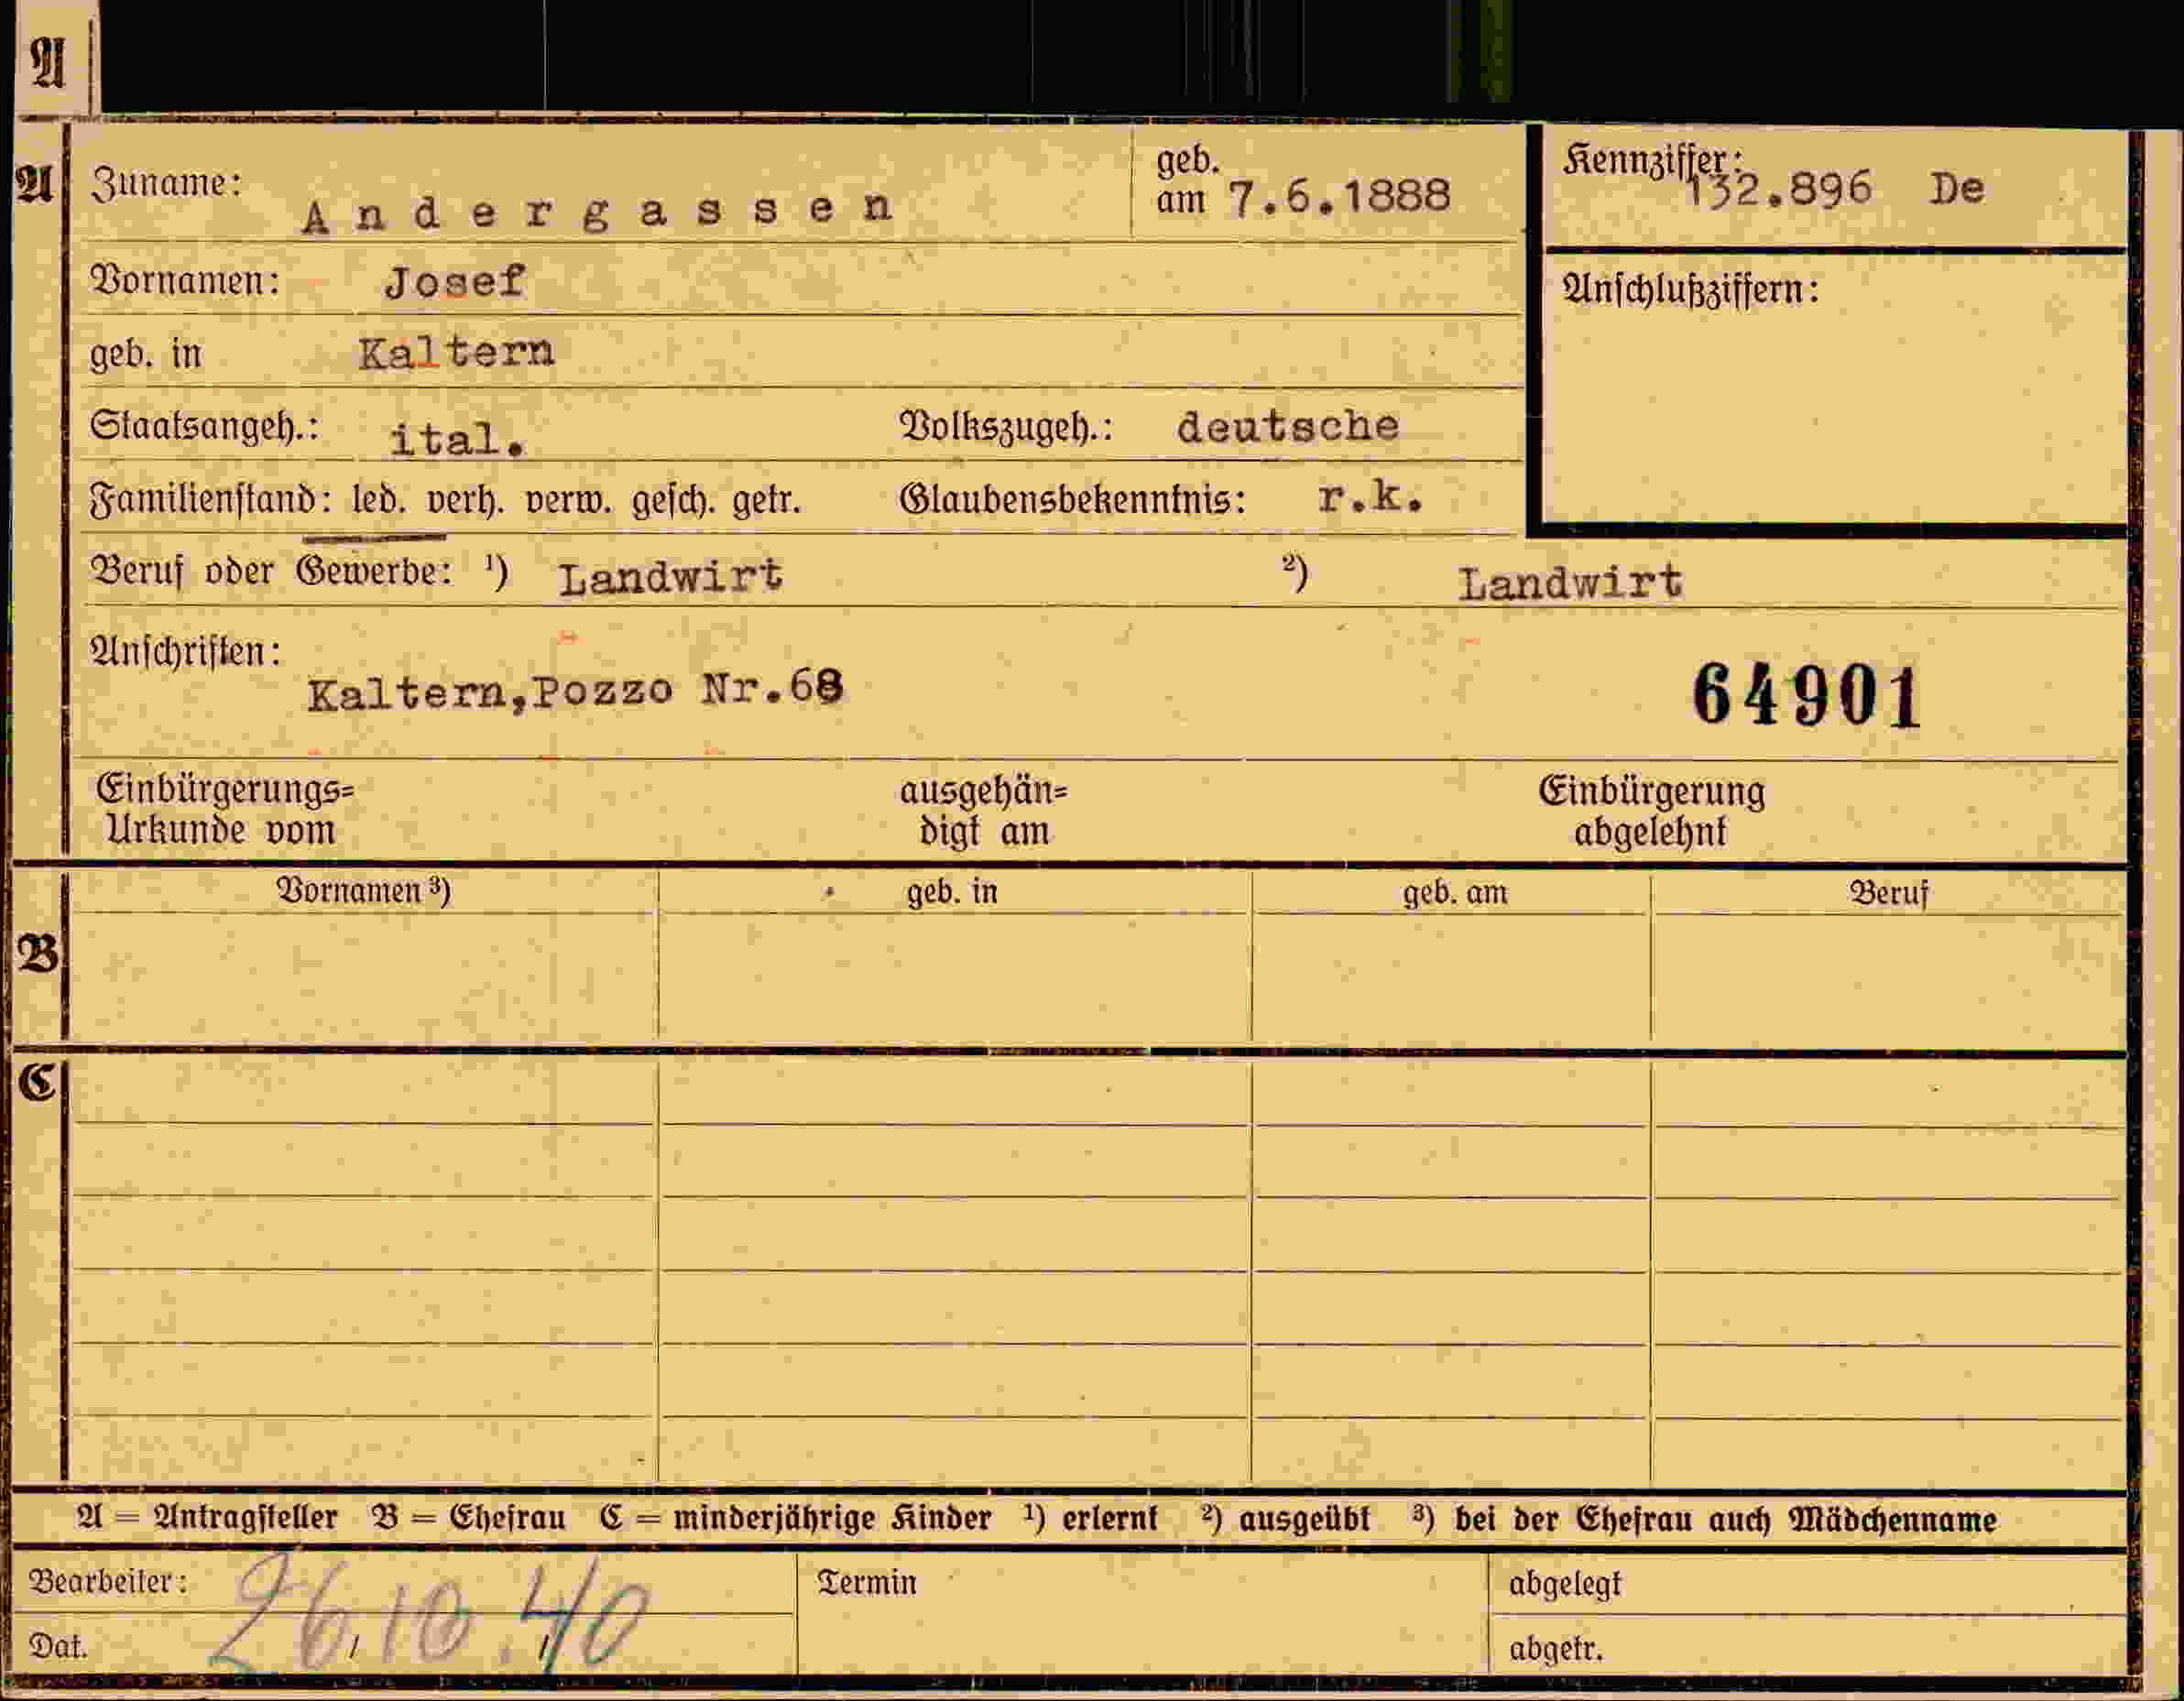 A
A
Zuname: Andergassen geb. am 7.6.1888
Kennziffer: 132.896 De
Vornamen: Josef
Anschlußziffern:
geb. in Kaltern
Staatsangeh.: ital. Volkszugeh.: deutsche
Familienstand: led. verh. verw. gesch. getr. Glaubensbekenntnis: r.k.
Beruf oder Gewerbe: ¹) Landwirt ²) Landwirt
Anschriften: Kaltern,Pozzo Nr.68
64901
Einbürgerungs=
Urkunde vom
ausgehän=
digt am
Einbürgerung
abgelehnt
B
Vornamen ³) geb. in geb. am Beruf
C
A = Antragsteller B = Ehefrau C = minderjährige Kinder ¹) erlernt ²) ausgeübt ³) bei der Ehefrau auch Mädchenname
Bearbeiter: Termin abgelegt
Dat. 26.10.40 abgetr.